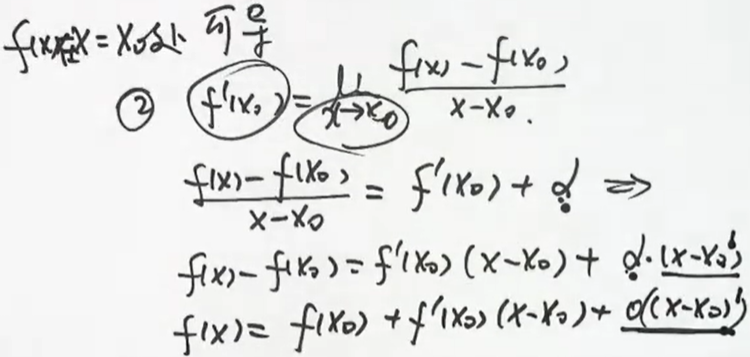 f(x)在x=x₀处可导
② f'(x₀) = lim x→x₀ (f(x) - f(x₀))/(x-x₀).
(f(x) - f(x₀))/(x-x₀) = f'(x₀) + α ⇒
f(x) - f(x₀) = f'(x₀)(x-x₀) + α·(x-x₀)¹
f(x) = f(x₀) + f'(x₀)(x-x₀) + o((x-x₀)¹)